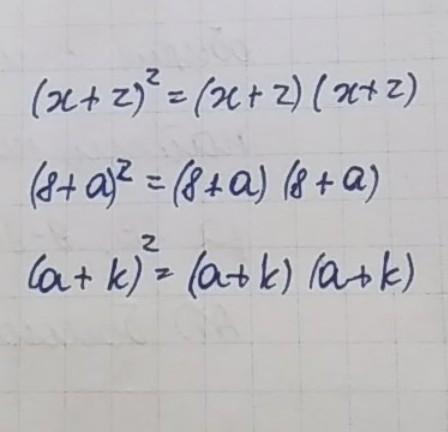 (x+z)² = (x+z) (x+z)
(8+a)² = (8+a) (8+a)
(a+k)² = (a+k) (a+k)